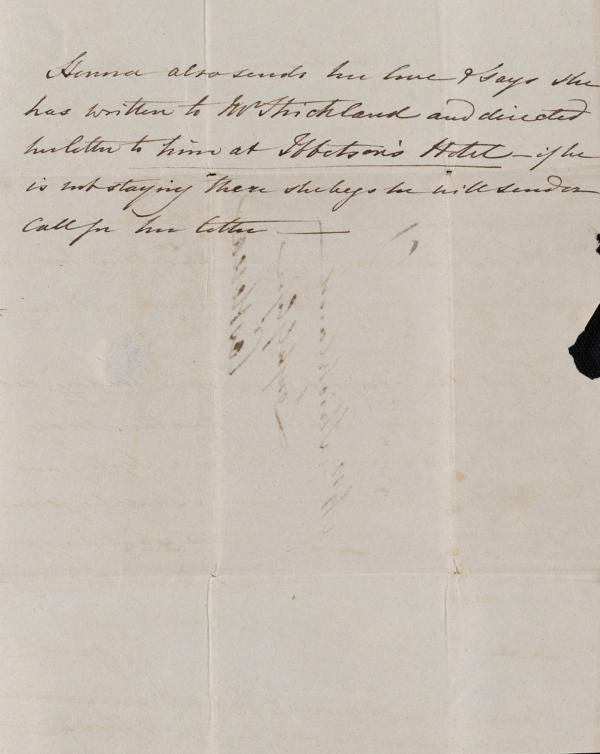 Honora also sends her love & says she
has written to Mr Strickland and directed
her letter to him at Ibbetson's Hotel — if he
is not staying there she begs he will send or
call for her letter —